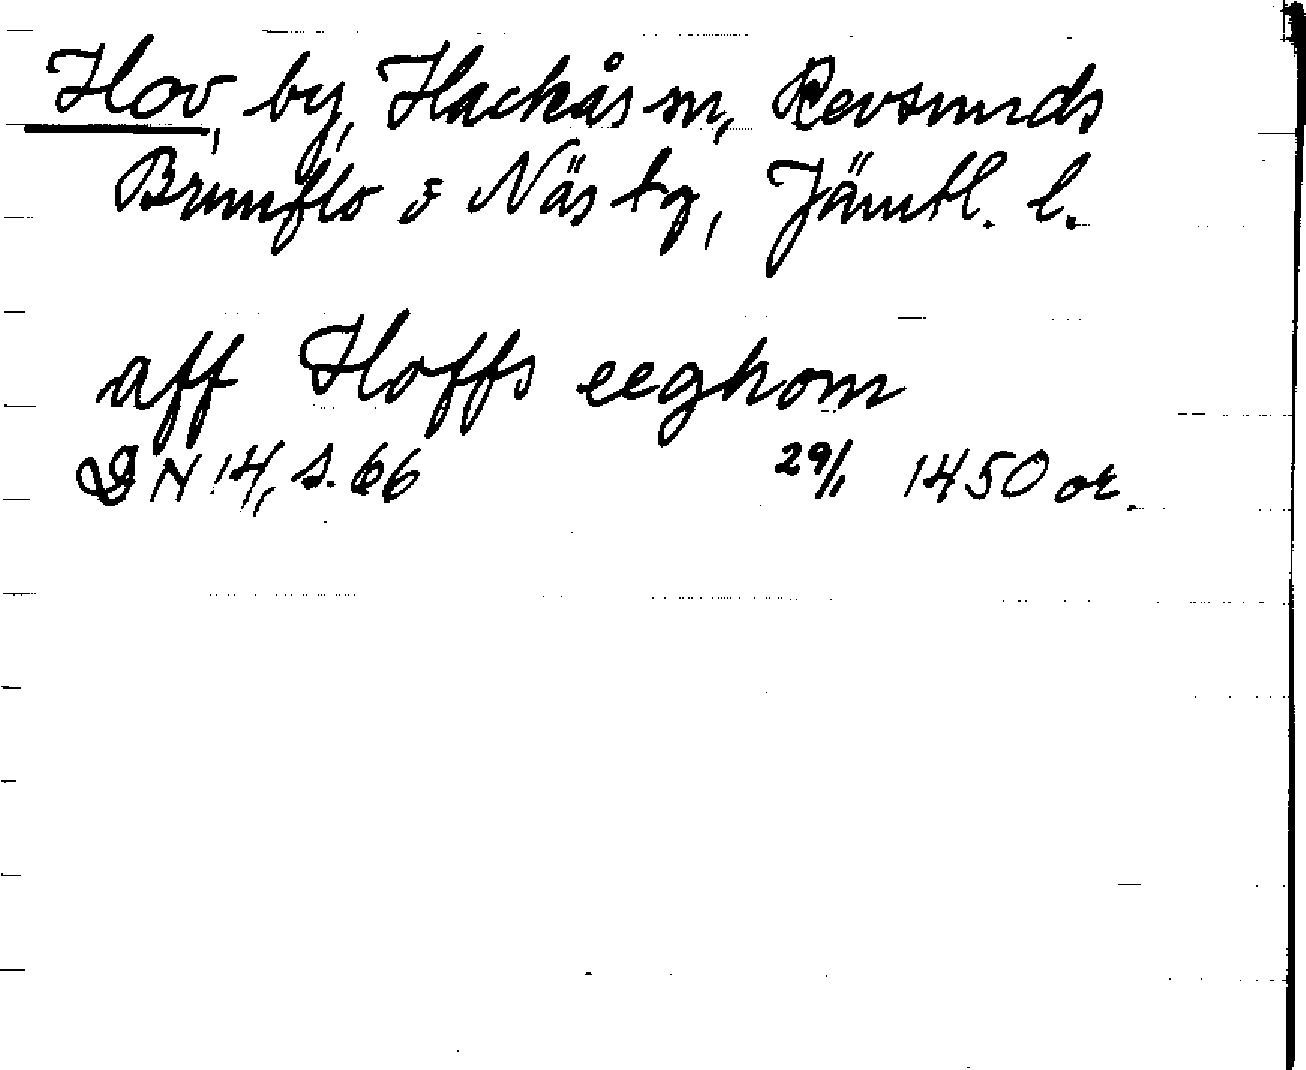 Hov, by, Hackås sn, Revsunds
Brunflo & Näs tg, Jämtl. l.
aff Hoffs eeghom
DN 14, s. 66 29/1 1450 or.